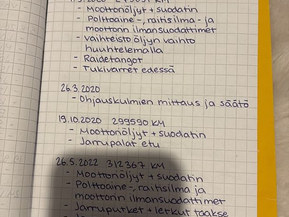 - Moottoriöljyt + suodatin
- Polttoaine-, raitisilma- ja
moottorin ilmansuodattimet
- Vaihteisto öljyn vaihto
huuhtelemalla
- Raidetangot
- Tukivarret edessä
26.3.2020
- Ohjauskulmien mittaus ja säätö
19.10.2020 299590 KM
- Moottoriöljyt + suodatin
- Jarrupalat etu
26.5.2022 312367 KM
- Moottoriöljyt + suodatin
- Polttoaine-, raitisilma ja
moottorin ilmansuodattimet
- Jarruputket + letkut taakse